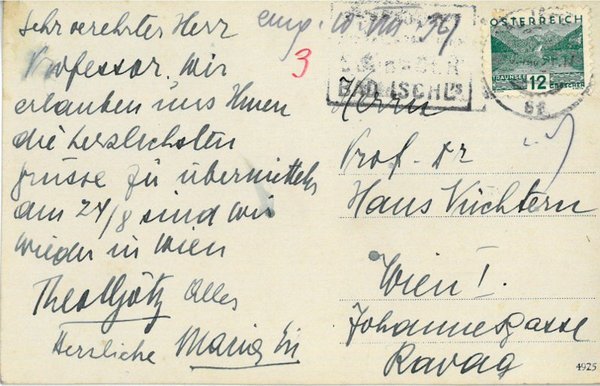 Sehr verehrter Herr
Professor. Wir
erlauben uns Ihnen
die herzlichsten
Grüsse zu übermitteln
am 24/8 sind wir
wieder in Wien
Alles
Herzliche Maria
3
BAD ISCHL
ÖSTERREICH
12
Herrn
Prof. Dr
Hans Nüchtern
Wien I.
Johannesgasse
Ravag
4925